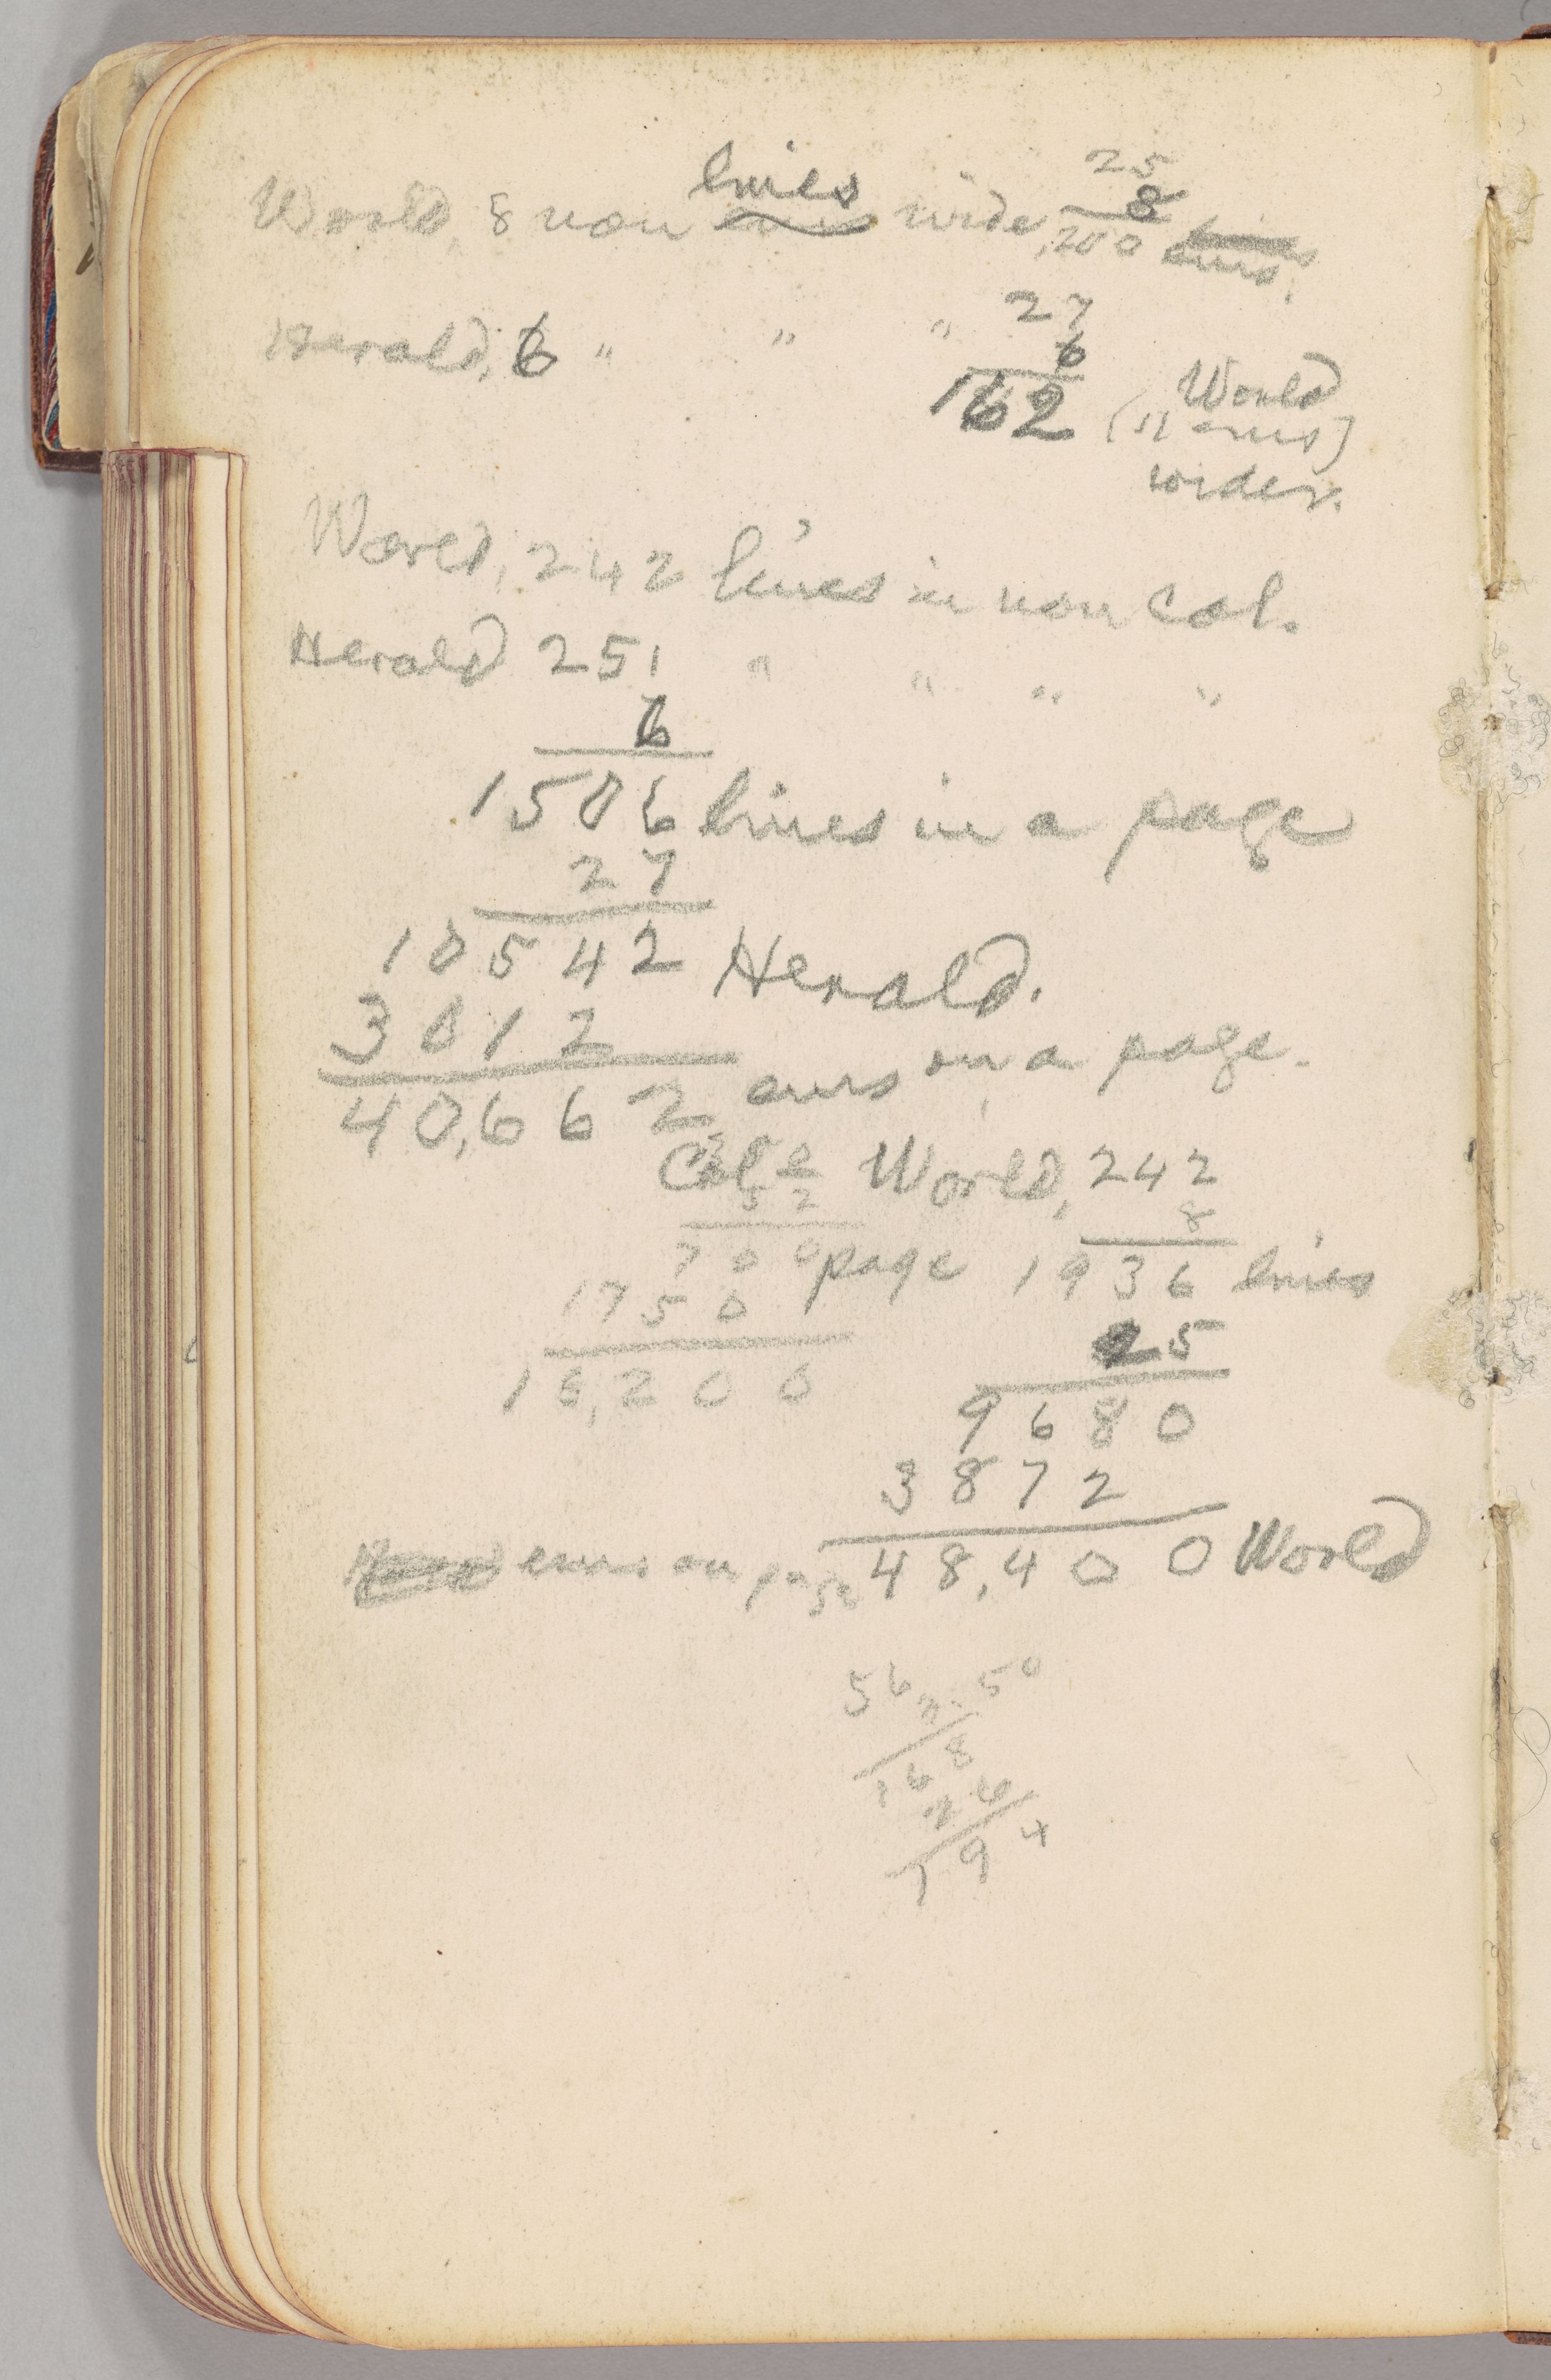 25
lines 8
World, 8 non ems wide, 200 lines ems.
27
Herald, 6 " " " 6
162 (World
11 ems)
wider.
World, 242 lines in non col.
Herald 251 " " " "
6
1506 lines in a page
27
10542 Herald.
3012
40,662 ems on a page.
Col World, 242
52 8
700 page 1936 lines
1750 25
18,200 9680
3872
ems on page 48,400 World
56 50
3
168
26
194